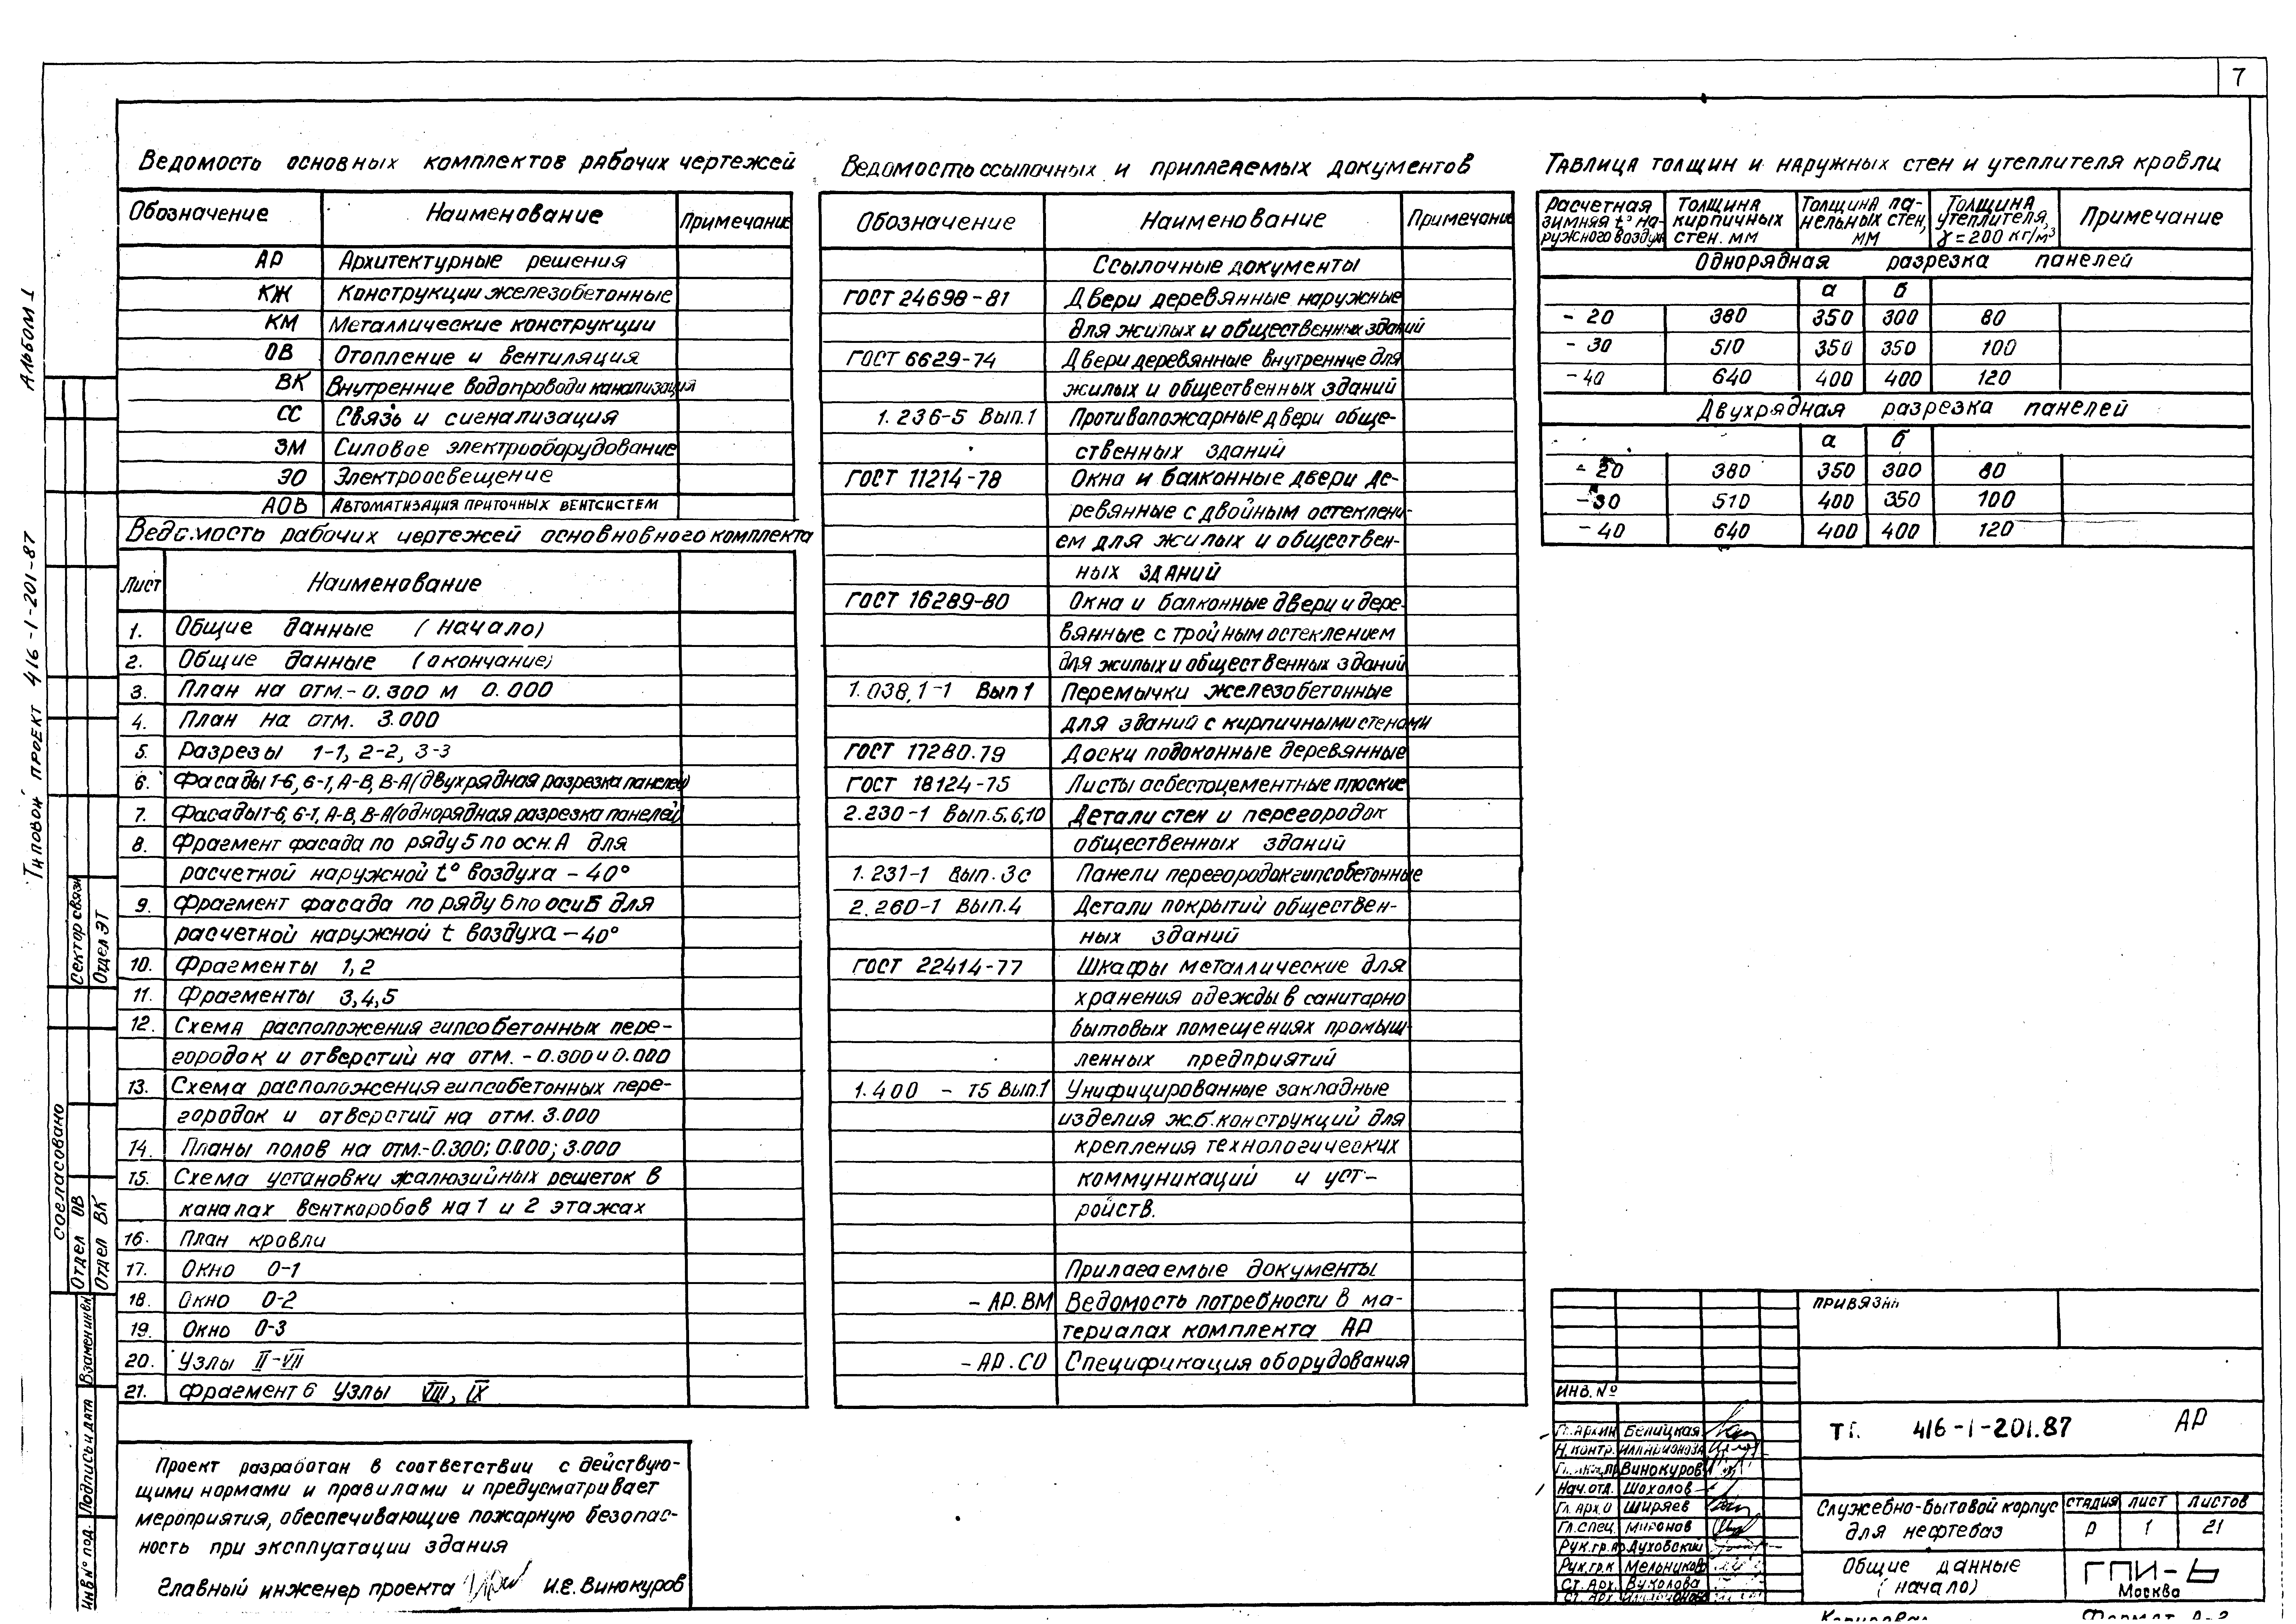 7
Альбом 1
Типовой проект 416-1-201-87
Ведомость основных комплектов рабочих чертежей
Обозначение Наименование Примечание
АР Архитектурные решения
КЖ Конструкции железобетонные
КМ Металлические конструкции
ОВ Отопление и вентиляция
ВК Внутренние водопровод и канализация
СС Связь и сигнализация
ЭМ Силовое электрооборудование
ЭО Электроосвещение
АОВ Автоматизация приточных вентсистем
Ведомость рабочих чертежей основновного комплекта
Лист Наименование
1. Общие данные (начало)
2. Общие данные (окончание)
3. План на отм. -0.300 м 0.000
4. План на отм. 3.000
5. Разрезы 1-1, 2-2, 3-3
6. Фасады 1-6, 6-1, А-В, В-А (двухрядная разрезка панелей)
7. Фасады 1-6, 6-1, А-В, В-А (однорядная разрезка панелей)
8. Фрагмент фасада по ряду 5 по осн. А для
расчетной наружной t° воздуха -40°
9. Фрагмент фасада по ряду 6 по оси Б для
расчетной наружной t воздуха -40°
10. Фрагменты 1,2
11. Фрагменты 3,4,5
12. Схема расположения гипсобетонных пере-
городок и отверстий на отм. -0.300 и 0.000
13. Схема расположения гипсобетонных пере-
городок и отверстий на отм. 3.000
14. Планы полов на отм. -0.300; 0.000; 3.000
15. Схема установки жалюзийных решеток в
каналах венткоробов на 1 и 2 этажах
16. План кровли
17. Окно О-1
18. Окно О-2
19. Окно О-3
20. Узлы II-VII
21. Фрагмент 6 Узлы VIII, IX
Проект разработан в соответствии с действую-
щими нормами и правилами и предусматривает
мероприятия, обеспечивающие пожарную безопас-
ность при эксплуатации здания
Главный инженер проекта И.Е. Винокуров
Ведомость ссылочных и прилагаемых документов
Обозначение Наименование Примечание
Ссылочные документы
ГОСТ 24698-81 Двери деревянные наружные
для жилых и общественных зданий
ГОСТ 6629-74 Двери деревянные внутренние для
жилых и общественных зданий
1.236-5 Вып.1 Противопожарные двери обще-
ственных зданий
ГОСТ 11214-78 Окна и балконные двери де-
ревянные с двойным остеклени-
ем для жилых и обществен-
ных зданий
ГОСТ 16289-80 Окна и балконные двери и дере-
вянные с тройным остеклением
для жилых и общественных зданий
1.038.1-1 Вып 1 Перемычки железобетонные
для зданий с кирпичными стенами
ГОСТ 17280.79 Доски подоконные деревянные
ГОСТ 18124-75 Листы асбестоцементные плоские
2.230-1 Вып.5,6,10 Детали стен и перегородок
общественных зданий
1.231-1 Вып. 3с Панели перегородок гипсобетонные
2.260-1 Вып.4 Детали покрытий обществен-
ных зданий
ГОСТ 22414-77 Шкафы металлические для
хранения одежды в санитарно
бытовых помещениях промыш-
ленных предприятий
1.400 - 15 Вып.1 Унифицированные закладные
изделия ж.б. конструкций для
крепления технологических
коммуникаций и уст-
ройств.
Прилагаемые документы
- АР.ВМ Ведомость потребности в ма-
териалах комплекта АР
- АР.СО Спецификация оборудования
Таблица толщин и наружных стен и утеплителя кровли
Расчетная зимняя t° наружного воздуха Толщина кирпичных стен. мм Толщина панельных стен, мм Толщина утеплителя, γ=200 кг/м³ Примечание
Однорядная разрезка панелей
а б
- 20 380 350 300 80
- 30 510 350 350 100
- 40 640 400 400 120
Двухрядная разрезка панелей
а б
- 20 380 350 300 80
- 30 510 400 350 100
- 40 640 400 400 120
Согласовано
Сектор связи
Отдел ЭТ
Отдел ОВ
Отдел ВК
Взамен инв №
Подпись и дата
Инв № под.
Привязан
Инв. №
Белицкая
Н.контр. Илларионова
Винокуров
Нач.отд. Шохолов
Ширяев
Гл.спец. Миронов
Духовский
Рук.гр.к Мельников
Ст. Арх. Вуколова
Ст. Арх.
416-1-201.87 АР
Служебно-бытовой корпус
для нефтебаз
Стадия Лист Листов
Р 1 21
Общие данные
(начало)
ГПИ-6
Москва
Копировал
Формат А-2